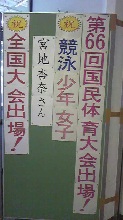 祝
第66回国民体育大会出場!
競泳少年女子
宮地杏奈さん
祝
全国大会出場!